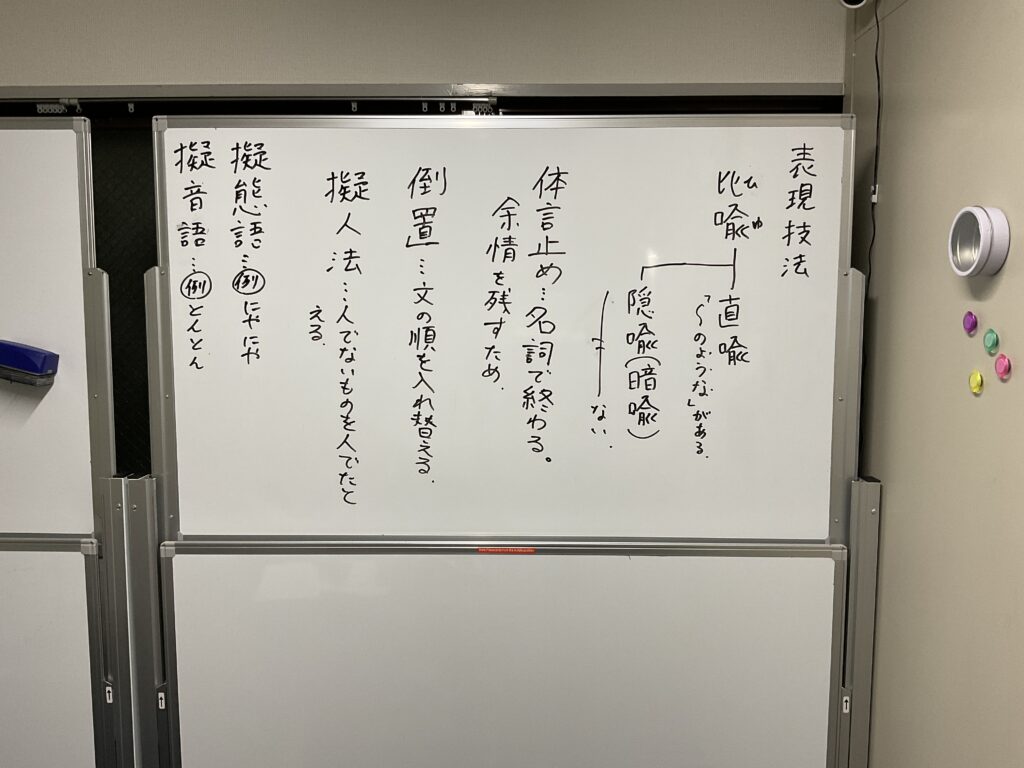 表現技法
比喩
ひ
ゆ
直喩
「〜のような」がある.
隠喩(暗喩)
〃 ない.
体言止め…名詞で終わる。
余情を残すため.
倒置…文の順を入れ替える.
擬人法…人でないものを人でたと
える.
擬態語…例 にやにや
擬音語…例 とんとん